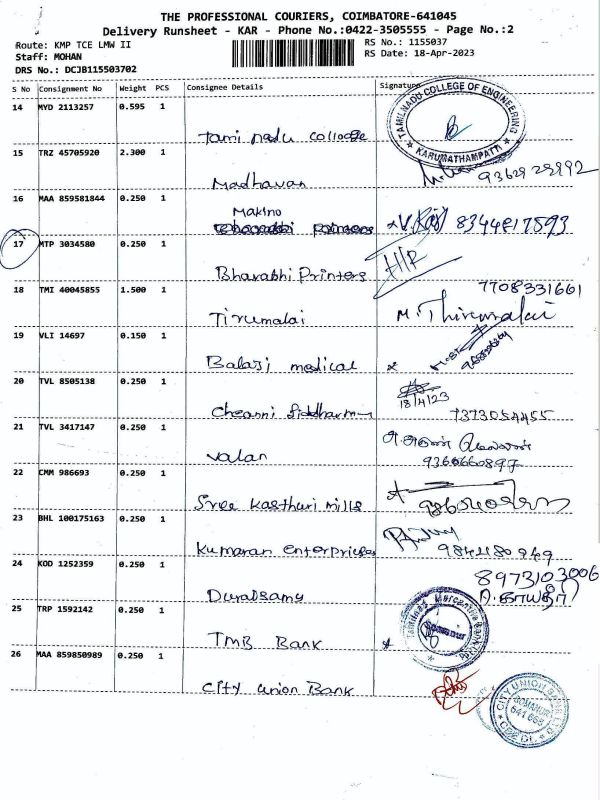 THE PROFESSIONAL COURIERS, COIMBATORE-641045
Delivery Runsheet - KAR - Phone No.:0422-3505555 - Page No.:2
Route: KMP TCE LMW II
RS No.: 1155037
Staff: MOHAN
RS Date: 18-Apr-2023
DRS No.: DCJB115503702
S No Consignment No Weight PCS Consignee Details Signature
14 MYD 2113257 0.595 1
TAMILNADU COLLEGE OF ENGINEERING
KARUMATHAMPATTI
Tami nadu Collooge
15 TRZ 45705920 2.300 1
Madhavan
16 MAA 859581844 0.250 1
Makino
8344817593
17 MTP 3034580 0.250 1
H/P
Bharathi Printers
7708331661
18 TMI 40045855 1.500 1
Tirumalai M. Thirumalai
19 VLI 14697 0.150 1
Balaji medical
20 TVL 8505138 0.250 1
18/4/23
Cheanni Siddharm
7373054455
21 TVL 3417147 0.250 1
Valan
22 CMM 986693 0.250 1
Sree Kasthuri mills
23 BHL 100175163 0.250 1
Kumaran enterprices
24 KOD 1252359 0.250 1
8973103006
Duraisamy
25 TRP 1592142 0.250 1
TMB Bank
26 MAA 859850989 0.250 1
City union Bank
CITY UNION BANK LTD
SOMANUR
641 668